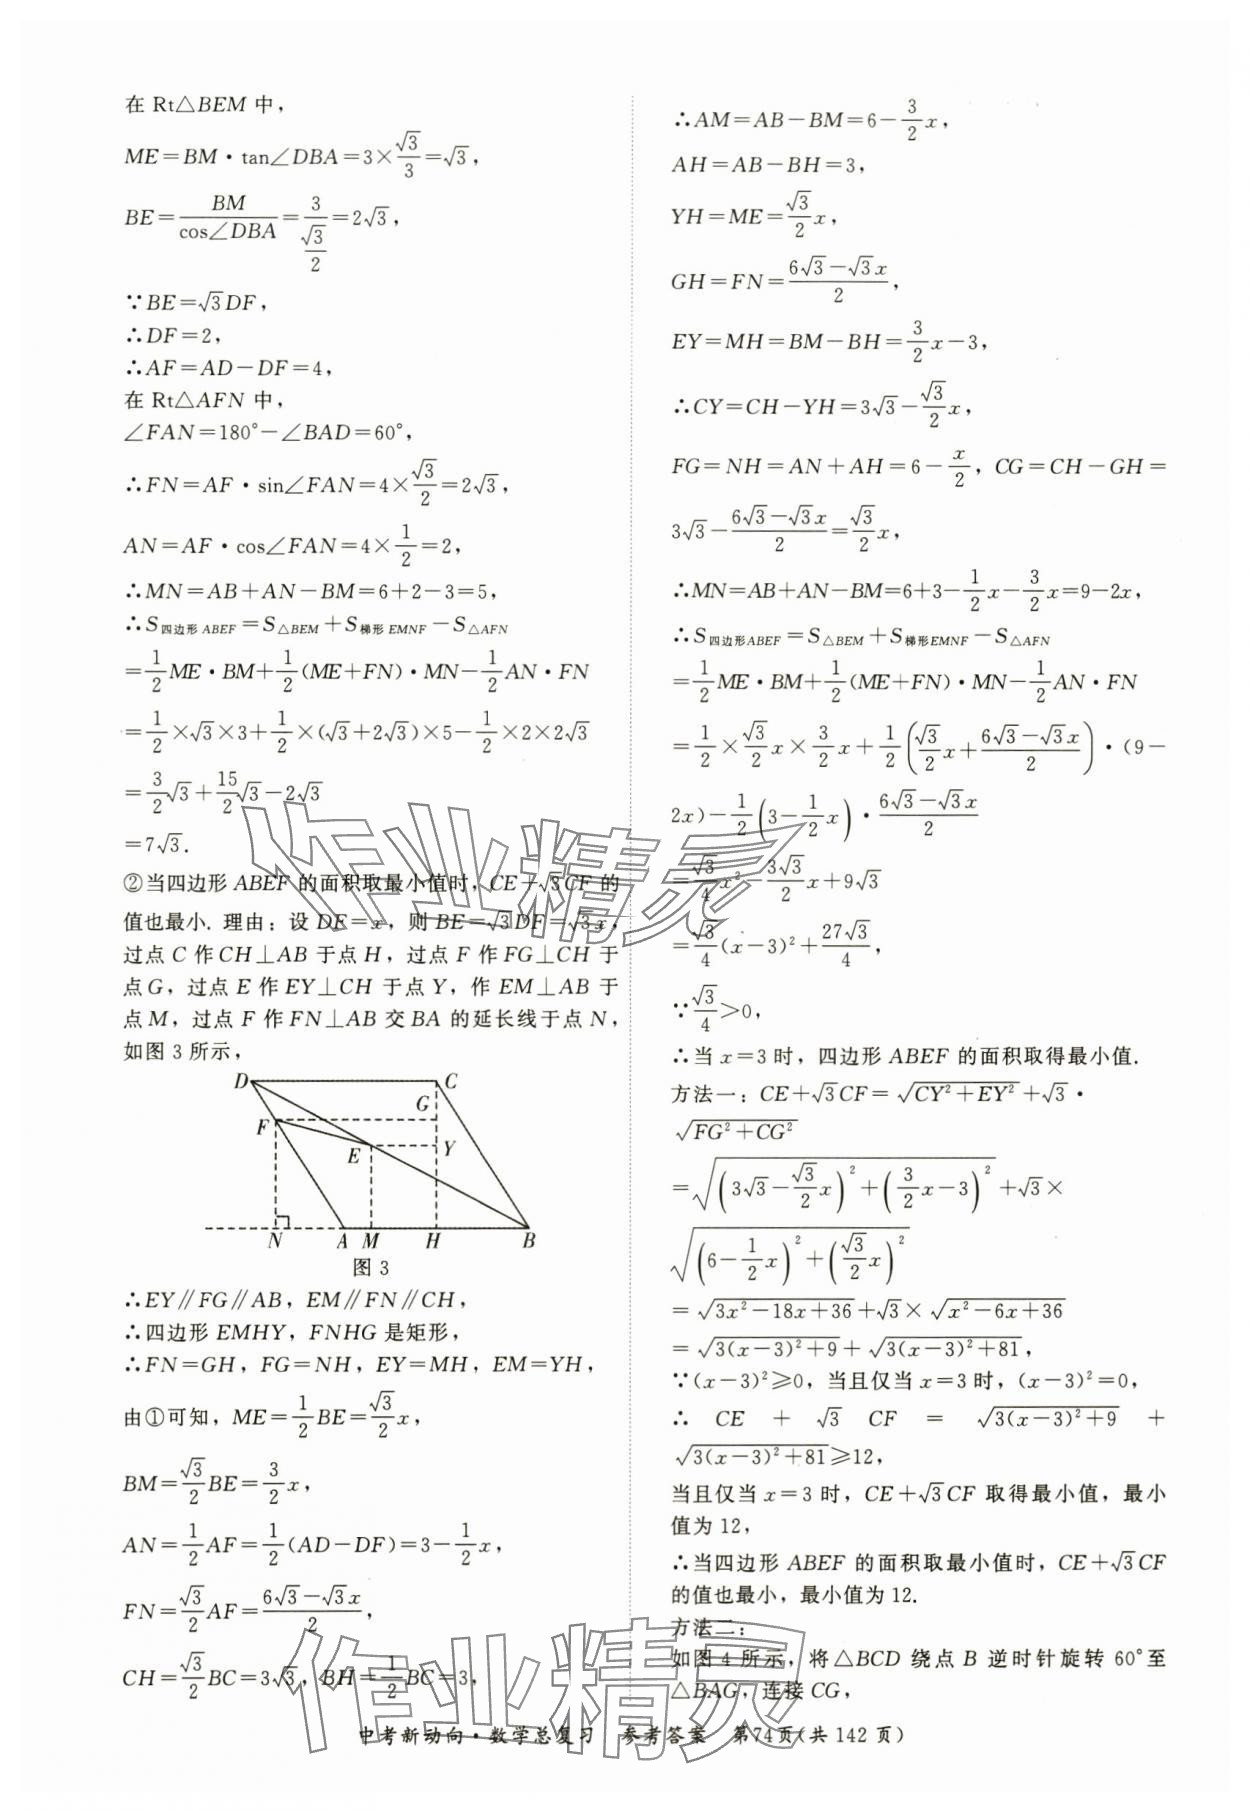 在 Rt△BEM 中，
ME＝BM·tan∠DBA＝3×√3/3＝√3，
BE＝BM/cos∠DBA＝3/(√3/2)＝2√3，
∵BE＝√3DF，
∴DF＝2，
∴AF＝AD－DF＝4，
在 Rt△AFN 中，
∠FAN＝180°－∠BAD＝60°，
∴FN＝AF·sin∠FAN＝4×√3/2＝2√3，
AN＝AF·cos∠FAN＝4×1/2＝2，
∴MN＝AB＋AN－BM＝6＋2－3＝5，
∴S四边形ABEF＝S△BEM＋S梯形EMNF－S△AFN
＝1/2ME·BM＋1/2(ME＋FN)·MN－1/2AN·FN
＝1/2×√3×3＋1/2×(√3＋2√3)×5－1/2×2×2√3
＝3/2√3＋15/2√3－2√3
＝7√3.
②当四边形 ABEF 的面积取最小值时，CE＋√3CF 的
值也最小. 理由：设 DF＝x，则 BE＝√3DF＝√3x，
过点 C 作 CH⊥AB 于点 H，过点 F 作 FG⊥CH 于
点G，过点 E 作 EY⊥CH 于点 Y，作 EM⊥AB 于
点 M，过点 F 作 FN⊥AB 交 BA 的延长线于点 N，
如图 3 所示，
D C
G
F
E Y
N A M H B
图 3
∴EY∥FG∥AB，EM∥FN∥CH，
∴四边形 EMHY，FNHG 是矩形，
∴FN＝GH，FG＝NH，EY＝MH，EM＝YH，
由①可知，ME＝1/2BE＝√3/2x，
BM＝√3/2BE＝3/2x，
AN＝1/2AF＝1/2(AD－DF)＝3－1/2x，
FN＝√3/2AF＝(6√3－√3x)/2，
CH＝√3/2BC＝3√3，BH＝1/2BC＝3，
∴AM＝AB－BM＝6－3/2x，
AH＝AB－BH＝3，
YH＝ME＝√3/2x，
GH＝FN＝(6√3－√3x)/2，
EY＝MH＝BM－BH＝3/2x－3，
∴CY＝CH－YH＝3√3－√3/2x，
FG＝NH＝AN＋AH＝6－x/2，CG＝CH－GH＝
3√3－(6√3－√3x)/2＝√3/2x，
∴MN＝AB＋AN－BM＝6＋3－1/2x－3/2x＝9－2x，
∴S四边形ABEF＝S△BEM＋S梯形EMNF－S△AFN
＝1/2ME·BM＋1/2(ME＋FN)·MN－1/2AN·FN
＝1/2×√3/2x×3/2x＋1/2(√3/2x＋(6√3－√3x)/2)·(9－
2x)－1/2(3－1/2x)·(6√3－√3x)/2
＝√3/4x²－3√3/2x＋9√3
＝√3/4(x－3)²＋27√3/4，
∵√3/4＞0，
∴当 x＝3 时，四边形 ABEF 的面积取得最小值.
方法一：CE＋√3CF＝√(CY²＋EY²)＋√3·
√(FG²＋CG²)
＝√((3√3－√3/2x)²＋(3/2x－3)²)＋√3×
√((6－1/2x)²＋(√3/2x)²)
＝√(3x²－18x＋36)＋√3×√(x²－6x＋36)
＝√(3(x－3)²＋9)＋√(3(x－3)²＋81)，
∵(x－3)²≥0，当且仅当 x＝3 时，(x－3)²＝0，
∴ CE ＋ √3 CF ＝ √(3(x－3)²＋9) ＋
√(3(x－3)²＋81)≥12，
当且仅当 x＝3 时，CE＋√3CF 取得最小值，最小
值为 12，
∴当四边形 ABEF 的面积取最小值时，CE＋√3CF
的值也最小，最小值为 12.
方法二：
如图 4 所示，将△BCD 绕点 B 逆时针旋转 60°至
△BAG，连接 CG，
中考新动向·数学总复习 参考答案 第74页(共 142 页)
作业精灵
作业精灵